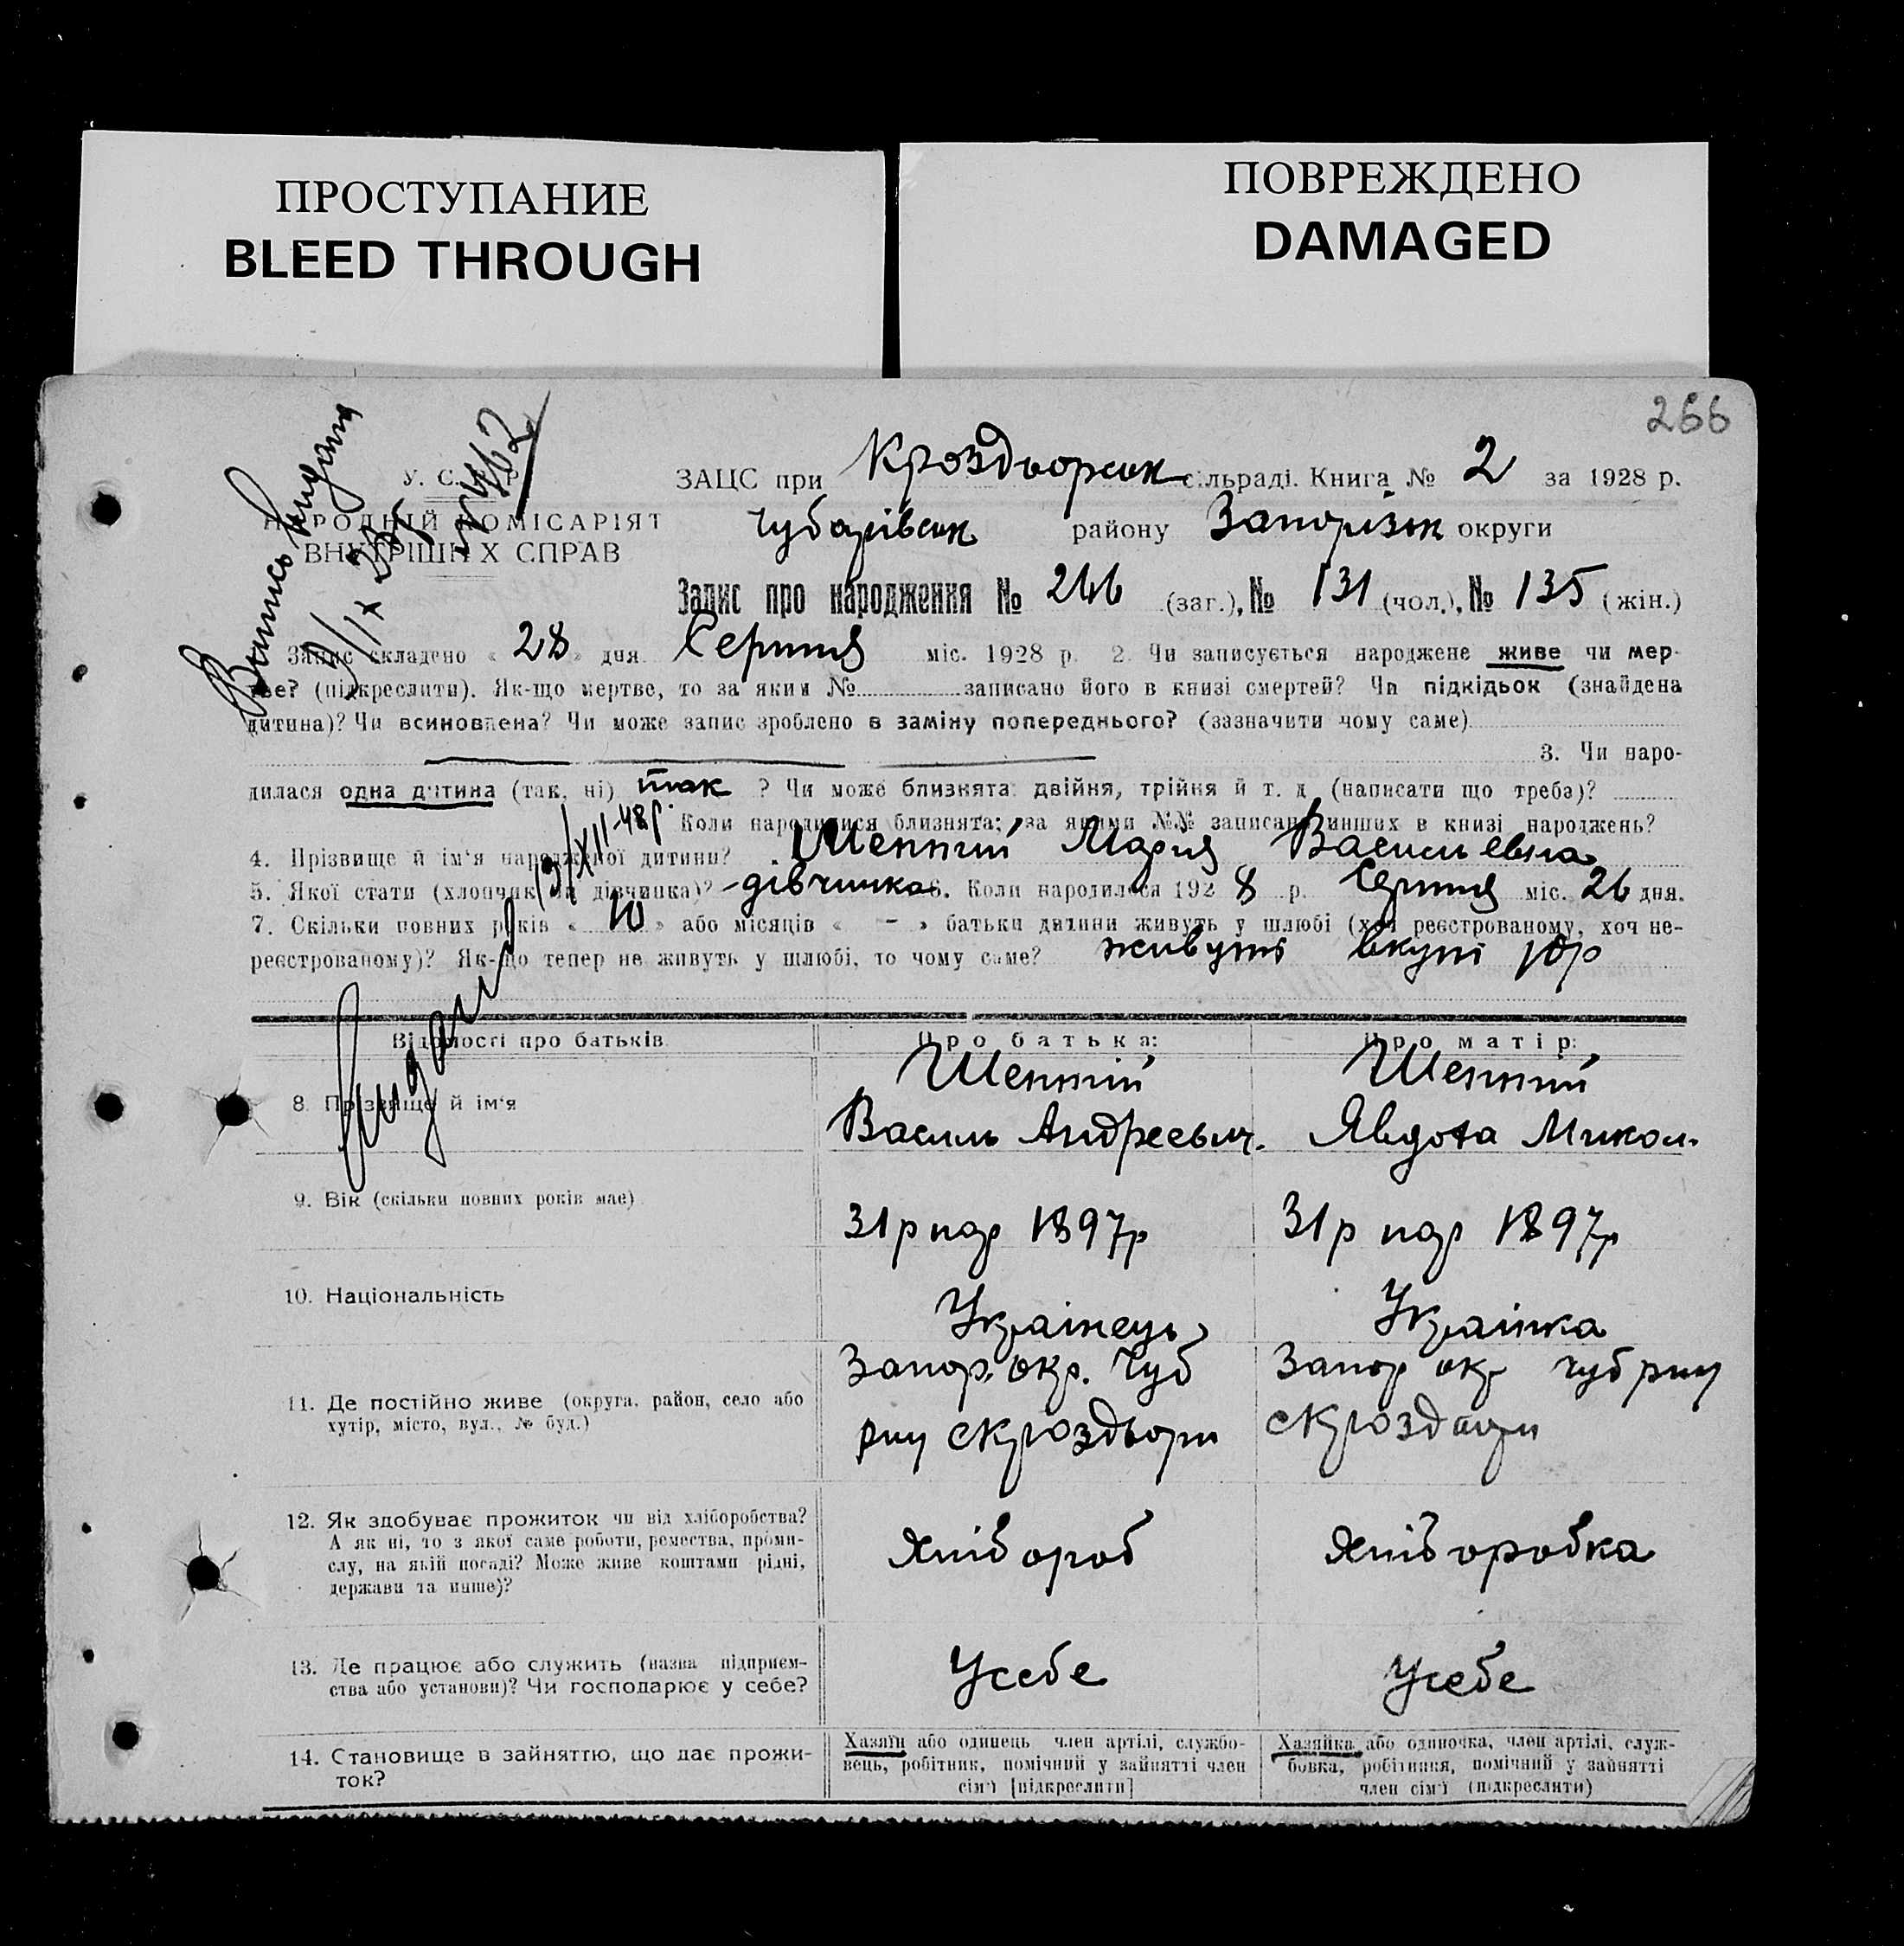 ПРОСТУПАНИЕ
BLEED THROUGH
ПОВРЕЖДЕНО
DAMAGED
266
У. С. Р Р
НАРОДНІЙ КОМІСАРІЯТ
ВНУТРІШНІХ СПРАВ
ЗАЦС при Кроздворськ сільраді. Книга № 2 за 1928 р.
Чубарівськ району Запорізьк округи
Запис про народження № 266 (заг.), № 131 (чол.), № 135 (жін.)
Запис складено « 28 » дня Серпня міс. 1928 р. 2. Чи записується народжене живе чи мер-
тве? (підкреслити). Як-що мертве, то за яким № записано його в книзі смертей? Чи підкідьок (знайдена
дитина)? Чи всиновлена? Чи може запис зроблено в заміну попереднього? (зазначити чому саме)
3. Чи наро-
дилася одна дитина (так, ні) так ? Чи може близнята: двійня, трійня й т. д. (написати що треба)?
Коли народилися близнята; за якими №№ записано инших в книзі народжень?
4. Прізвище й ім'я народженої дитини? Шептій Мария Васильевна
5. Якої стати (хлопчик чи дівчинка)? - дівчинка 6. Коли народилося 192 8 р. Серпня міс. 26 дня.
7. Скільки повних років « 10 » або місяців « - » батьки дитини живуть у шлюбі (хоч реєстрованому, хоч не-
реєстрованому)? Як-що тепер не живуть у шлюбі, то чому саме? живуть вкупі 10р
Відомості про батьків
Про батька:
Про матір:
8. Прізвище й ім'я
Шептій
Василь Андреевич.
Шептій
Явдота Микол.
9. Вік (скільки повних років має)
31р нар 1897р
31р нар 1897р
10. Національність
Українець
Українка
11. Де постійно живе (округа, район, село або
хутір, місто, вул., № буд.)
Запор. окр. Чуб
рну с Кроздвори
Запор окр Чуб рну
с Кроздвори
12. Як здобуває прожиток чи від хліборобства?
А як ні, то з якої саме роботи, ремества, проми-
слу, на якій посаді? Може живе коштами рідні,
держави та инше)?
Хлібороб
Хліборобка
13. Де працює або служить (назва підприєм-
ства або установи)? Чи господарює у себе?
Усебе
Усебе
14. Становище в зайняттю, що дає прожи-
ток?
Хазяїн або одинець член артілі, службо-
вець, робітник, помічний у зайнятті член
сім'ї [підкреслити]
Хазяйка або одиночка, член артілі, служ-
бовка, робітниця, помічний у зайнятті
член сім'ї (підкреслити)